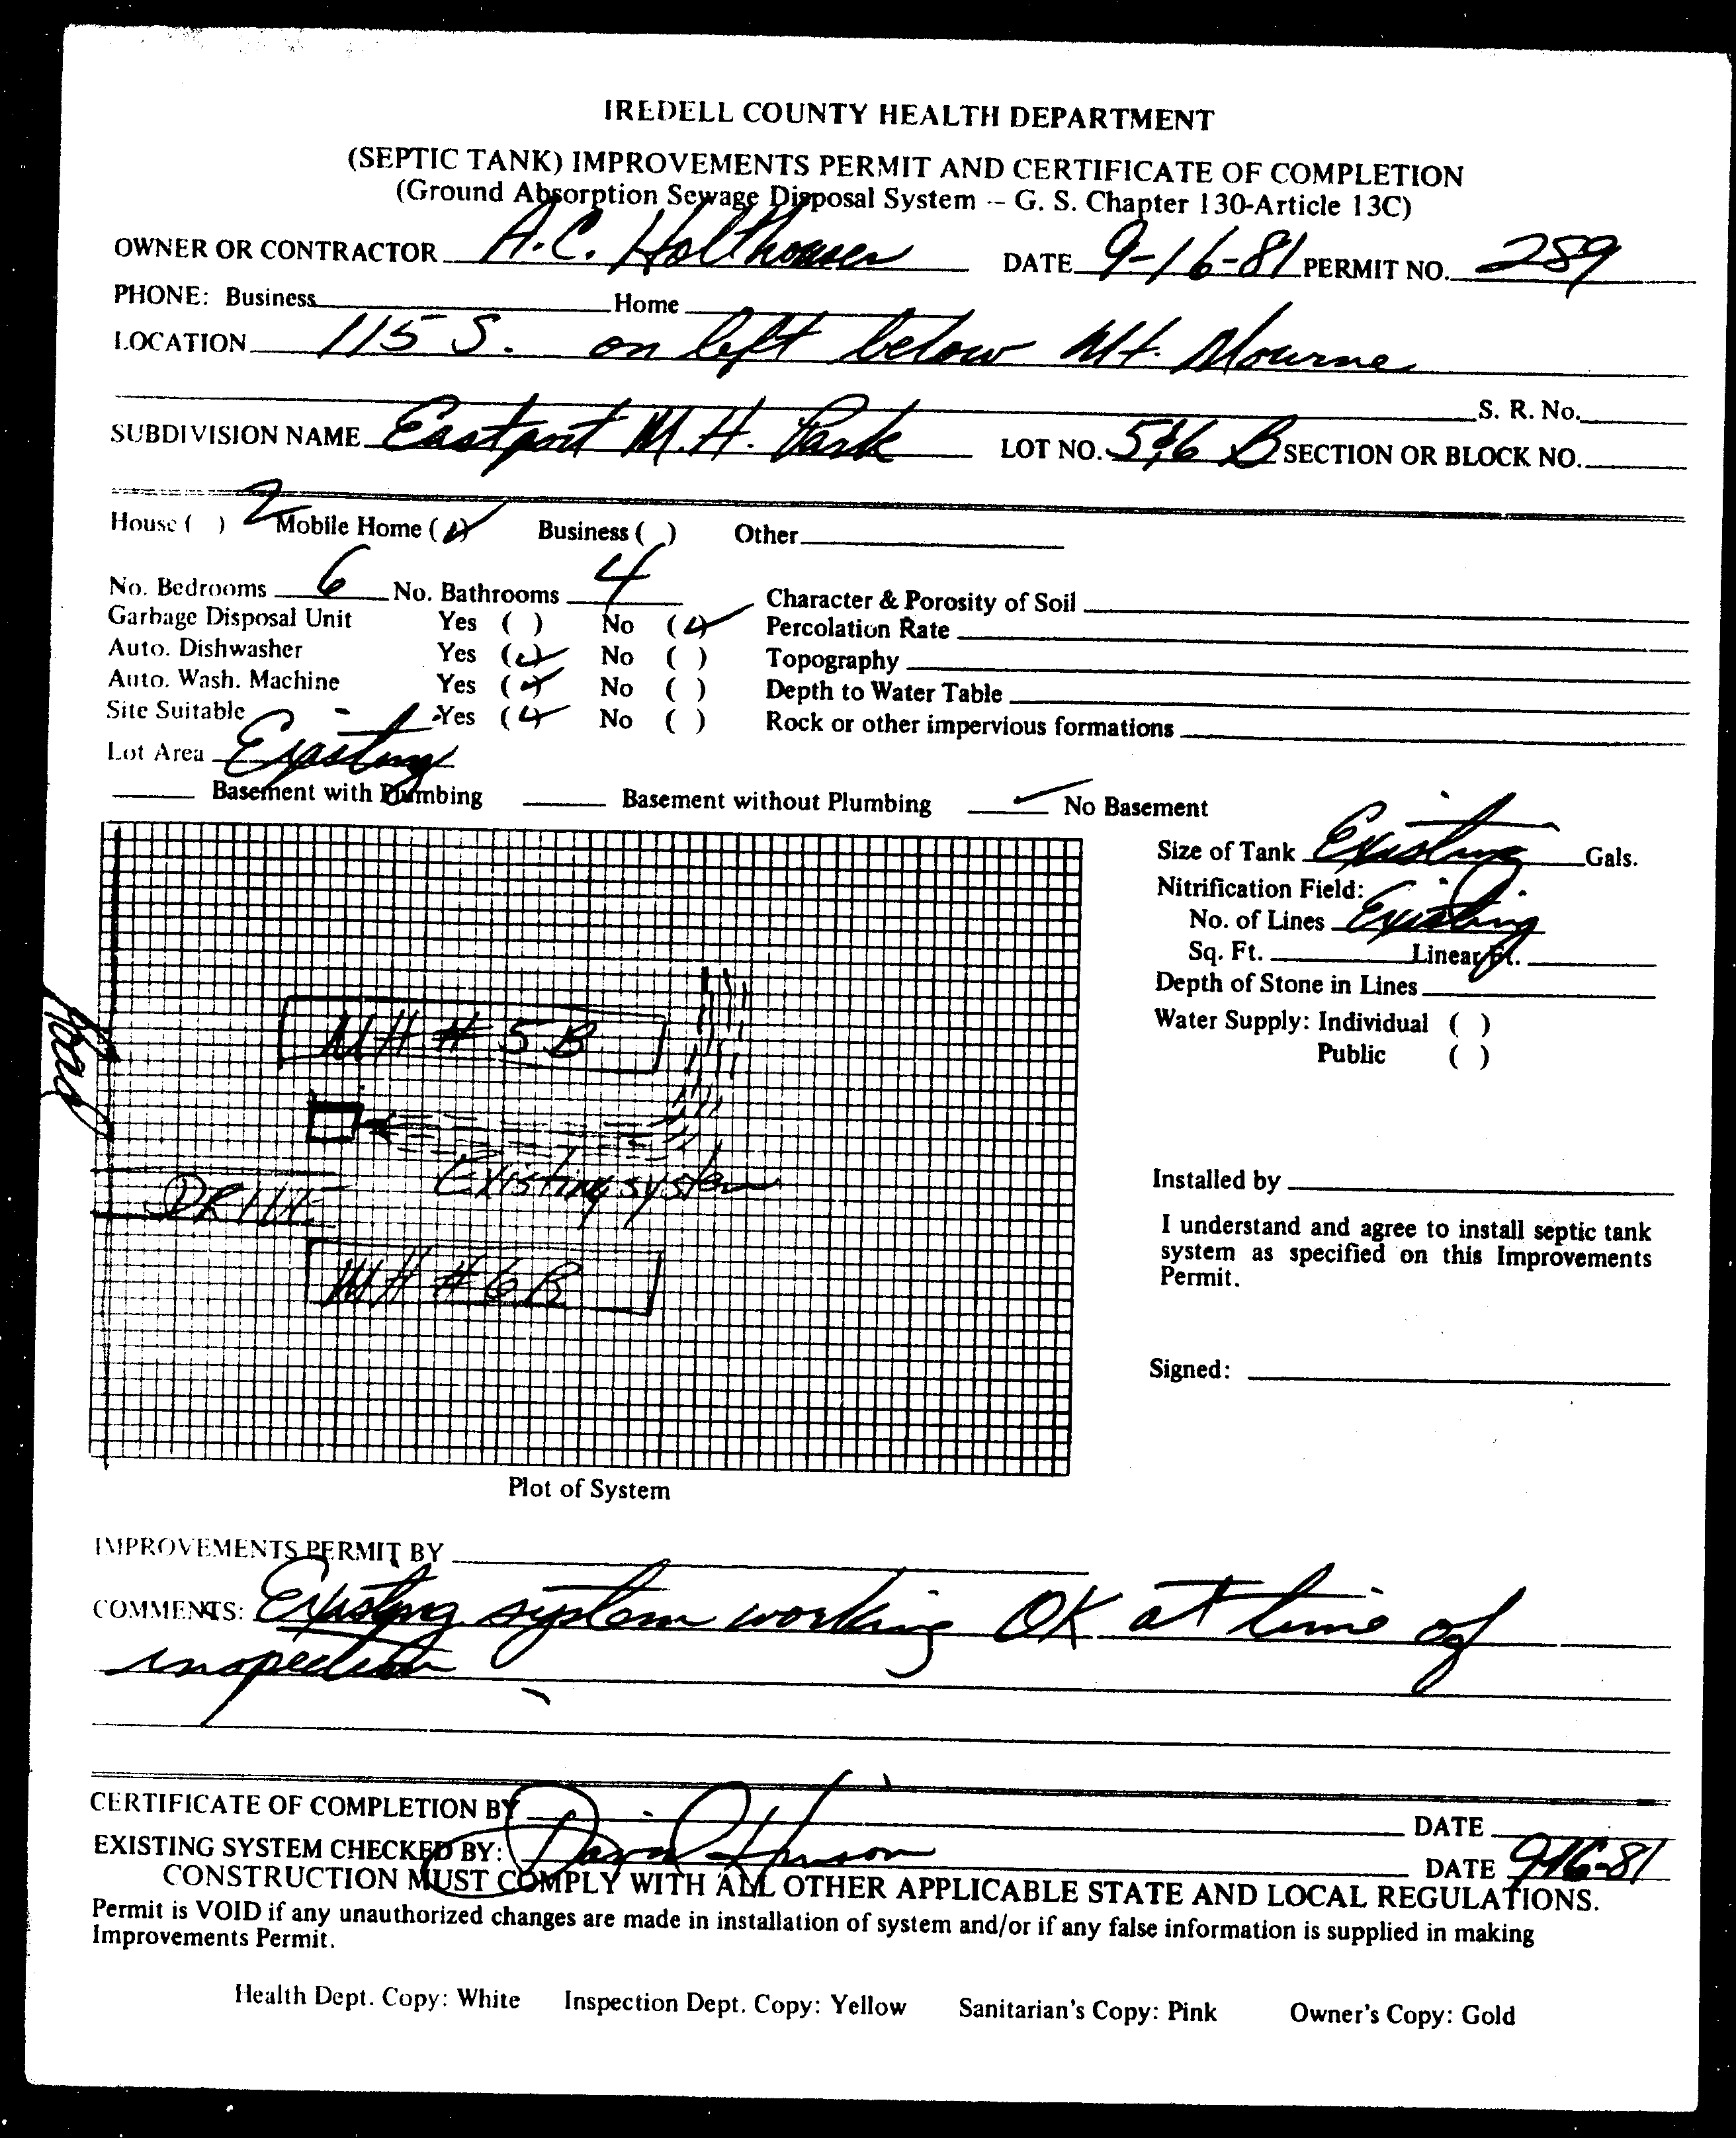 IREDELL COUNTY HEALTH DEPARTMENT
(SEPTIC TANK) IMPROVEMENTS PERMIT AND CERTIFICATE OF COMPLETION
(Ground Absorption Sewage Disposal System -- G. S. Chapter 130-Article 13C)
OWNER OR CONTRACTOR A.C. Holthouser DATE 9-16-81 PERMIT NO. 289
PHONE: Business Home
LOCATION 115 S. on left below Mt. Mourne
S. R. No.
SUBDIVISION NAME Eastport M.H. Park LOT NO. 5&6 B SECTION OR BLOCK NO.
House ( ) 2 Mobile Home (✓) Business ( ) Other
No. Bedrooms 6 No. Bathrooms 4 Character & Porosity of Soil
Garbage Disposal Unit Yes ( ) No (✓) Percolation Rate
Auto. Dishwasher Yes (✓) No ( ) Topography
Auto. Wash. Machine Yes (✓) No ( ) Depth to Water Table
Site Suitable Yes (✓) No ( ) Rock or other impervious formations
Lot Area Existing
Basement with Plumbing Basement without Plumbing ✓ No Basement
Size of Tank Existing Gals.
Nitrification Field:
No. of Lines Existing
Sq. Ft. Linear Ft.
Depth of Stone in Lines
Water Supply: Individual ( )
Public ( )
Road
MH # 5B
Existing system
DRIVE
MH # 6B
Installed by
I understand and agree to install septic tank
system as specified on this Improvements
Permit.
Signed:
Plot of System
IMPROVEMENTS PERMIT BY
COMMENTS: Existing system working OK at time of
inspection
CERTIFICATE OF COMPLETION BY DATE
EXISTING SYSTEM CHECKED BY: David DATE 9-16-81
CONSTRUCTION MUST COMPLY WITH ALL OTHER APPLICABLE STATE AND LOCAL REGULATIONS.
Permit is VOID if any unauthorized changes are made in installation of system and/or if any false information is supplied in making
Improvements Permit.
Health Dept. Copy: White Inspection Dept. Copy: Yellow Sanitarian's Copy: Pink Owner's Copy: Gold